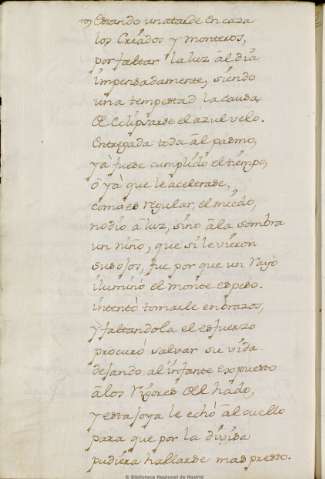 Estando una tarde en caza
los Criados y monteros,
por faltar la luz al dia
impensadamente, siendo
una tempestad la causa,
de eclipsarse el azul velo.
Entregada toda al pasmo,
ya fuese cumplido el tiempo,
ò yà que le acelerase,
como es regular, el miedo,
no dio à luz, sino à la sombra
un niño, que si le vieron
sus ojos, fue, por que un Rayo
iluminò el monte espeso.
intentò tomarle en brazos,
y faltandola el esfuerzo
procurò salvar su vida
dejando al infante expuesto
à los Rigores del hado,
y esta joya le echò al cuello
para que por la divisa
pudiera hallarse mas presto.
© Biblioteca Nacional de España